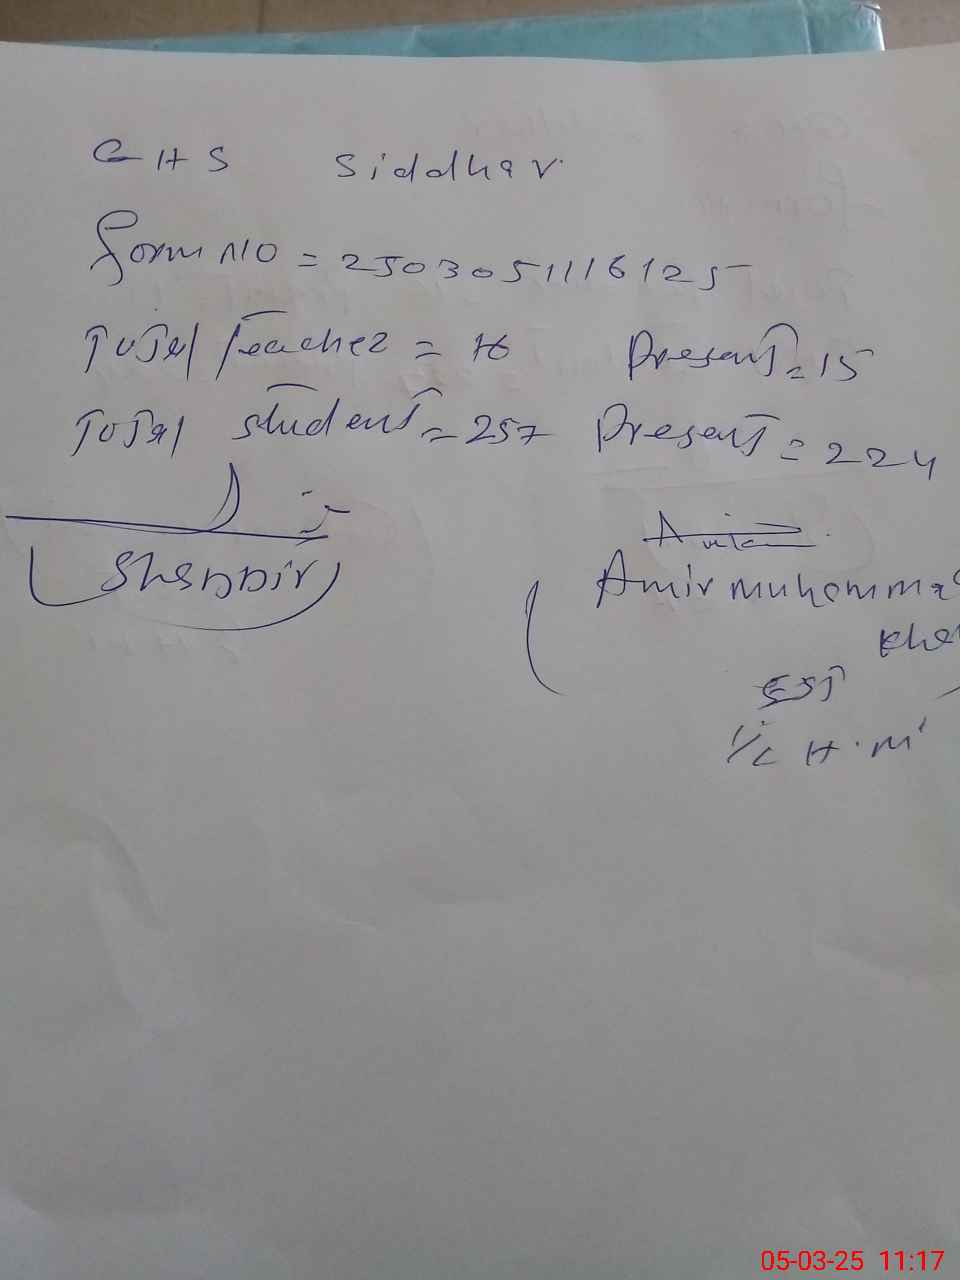 GHS Siddhar
Form NO = 2503051116125
Total Teacher = 16 Present = 15
Total student = 257 Present = 224
(Shabbir)
Amir muhamma
Kha
SST
I/C H.M
05-03-25 11:17